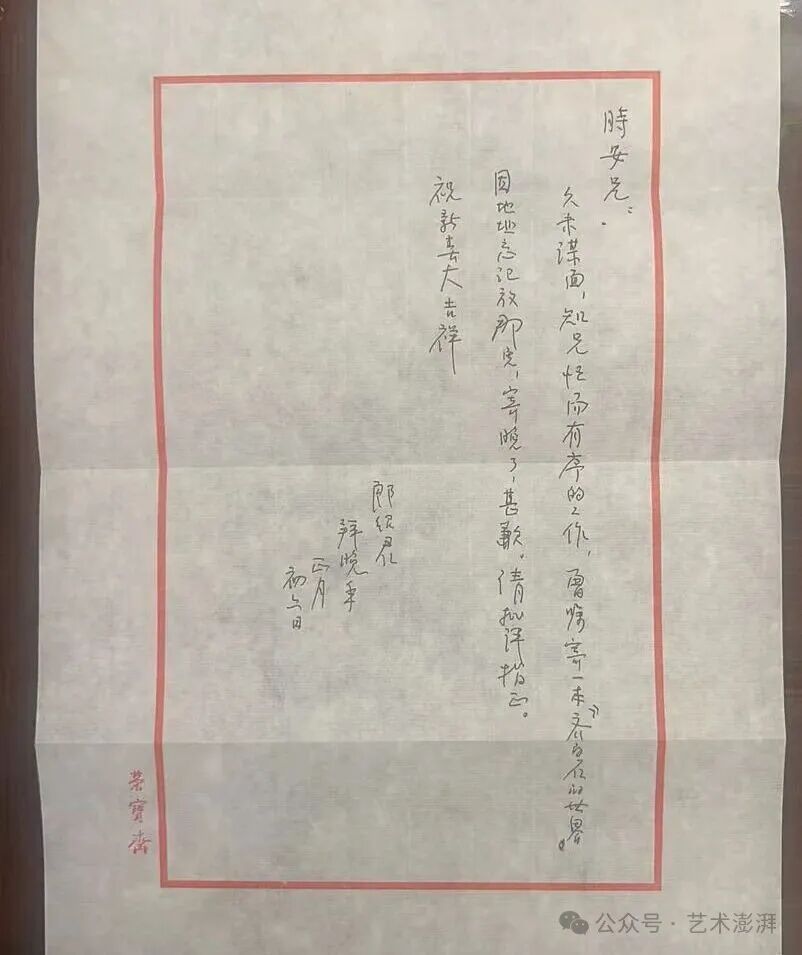 時安兄：
久未谋面，知兄忙而有序的工作，曾嘱寄一本《齐白石的世界》
因地址忘记放那儿，寄晚了，甚歉。请批评指正。
祝新春大吉祥
郎绍君
拜晚年
正月
初六日
荣寶齋
公众号·艺术澎湃